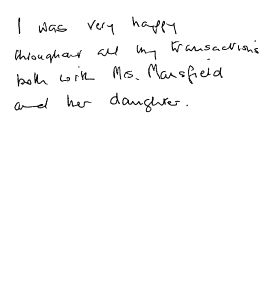 I was very happy
throughout all my transactions
both with Mrs. Mansfield
and her daughter.